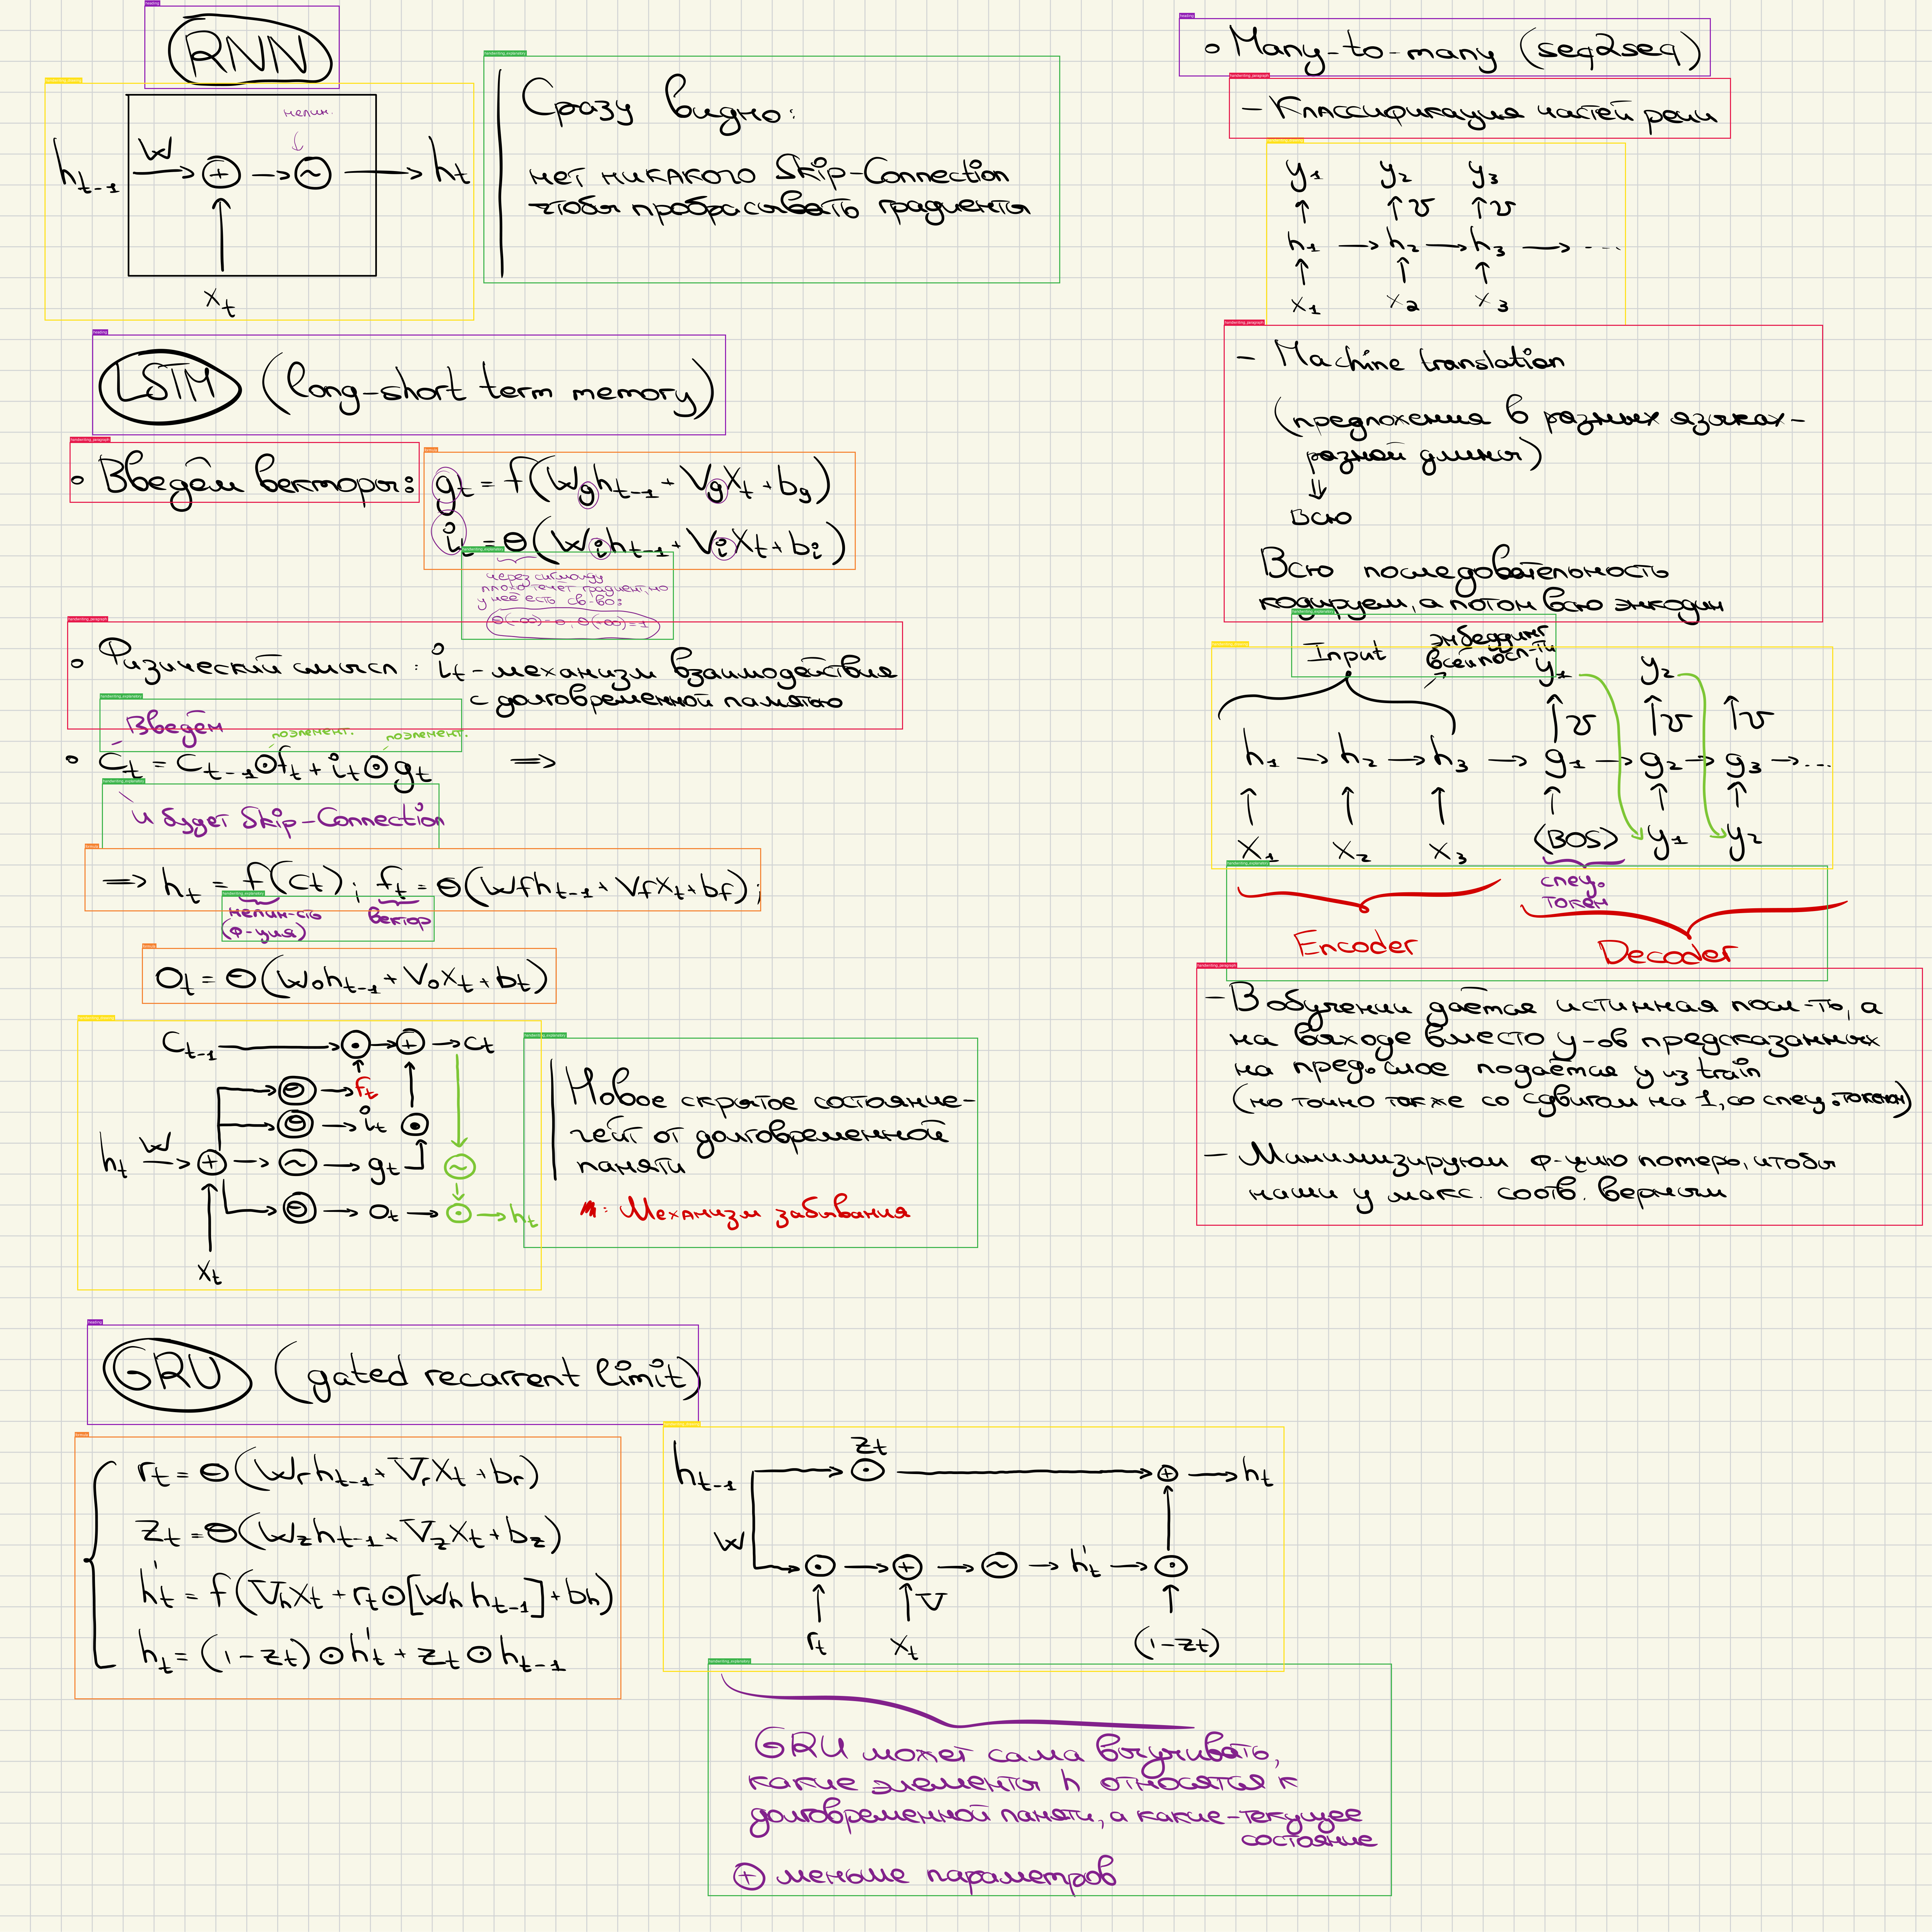 RNN
нелин.
h_{t-1} W → ⊕ → ~ → h_t
x_t
Сразу видно:
нет никакого Skip-Connection
чтобы пробрасывать градиенты
LSTM (long-short term memory)
∘ Введём векторы:
g_t = f(W_g h_{t-1} + V_g X_t + b_g)
i_t = Θ(W_i h_{t-1} + V_i X_t + b_i)
через сигмоиду
плохо течет градиент, но
у неё есть св-во:
∘ Физический смысл: i_t - механизм взаимодействия
с долговременной памятью
Введём
поэлемент. поэлемент.
∘ C_t = C_{t-1} ⊙ f_t + i_t ⊙ g_t ⇒
и будет Skip-Connection
⇒ h_t = f(c_t); f_t = Θ(W_f h_{t-1} + V_f X_t + b_f);
нелин-сть вектор
(ф-ция)
O_t = Θ(W_o h_{t-1} + V_o X_t + b_t)
C_{t-1} → ⊙ → ⊕ → c_t
Θ → f_t
Θ → i_t ⊙
h_t W → ⊕ → ~ → g_t ~
Θ → o_t → ⊙ → h_t
x_t
Новое скрытое состояние -
гейт от долговременной
памяти
: Механизм забывания
GRU (gated recarrent limit)
r_t = Θ(W_r h_{t-1} + V_r X_t + b_r)
z_t = Θ(W_z h_{t-1} + V_z X_t + b_z)
h'_t = f(V_h X_t + r_t ⊙ [W_h h_{t-1}] + b_h)
h_t = (1-z_t) ⊙ h'_t + z_t ⊙ h_{t-1}
z_t
h_{t-1} → ⊙ → ⊕ → h_t
W ⊙ → ⊕ → ~ → h'_t → ⊙
V
r_t x_t (1-z_t)
GRU может сама выучивать,
какие элементы h относятся к
долговременной памяти, а какие - текущее
состояние
⊕ меньше параметров
∘ Many-to-many (seq2seq)
- Классификация частей речи
y_1 y_2 y_3
↑ ↑ V ↑ V
h_1 → h_2 → h_3 → ...
↑ ↑ ↑
x_1 x_2 x_3
- Machine translation
(предложения в разных языках -
разной длины)
⇓
Всю
Всю последовательность
кодируем, а потом всю энкодим
Input эмбеддинг
всей посл-ти
y_1 y_2
↑ V ↑ V ↑ V
h_1 → h_2 → h_3 → g_1 → g_2 → g_3 → ...
↑ ↑ ↑ ↑ ↑ ↑
X_1 X_2 X_3 (BOS) y_1 y_2
спец.
токен
Encoder Decoder
- В обучении даётся истинная посл-ть, а
на выходе вместо y-ов предсказанных
на пред. слое подаётся y из train
(но точно также со сдвигом на 1, со спец. токеном)
- Минимизируем ф-цию потерь, чтобы
наши y макс. соотв. верным